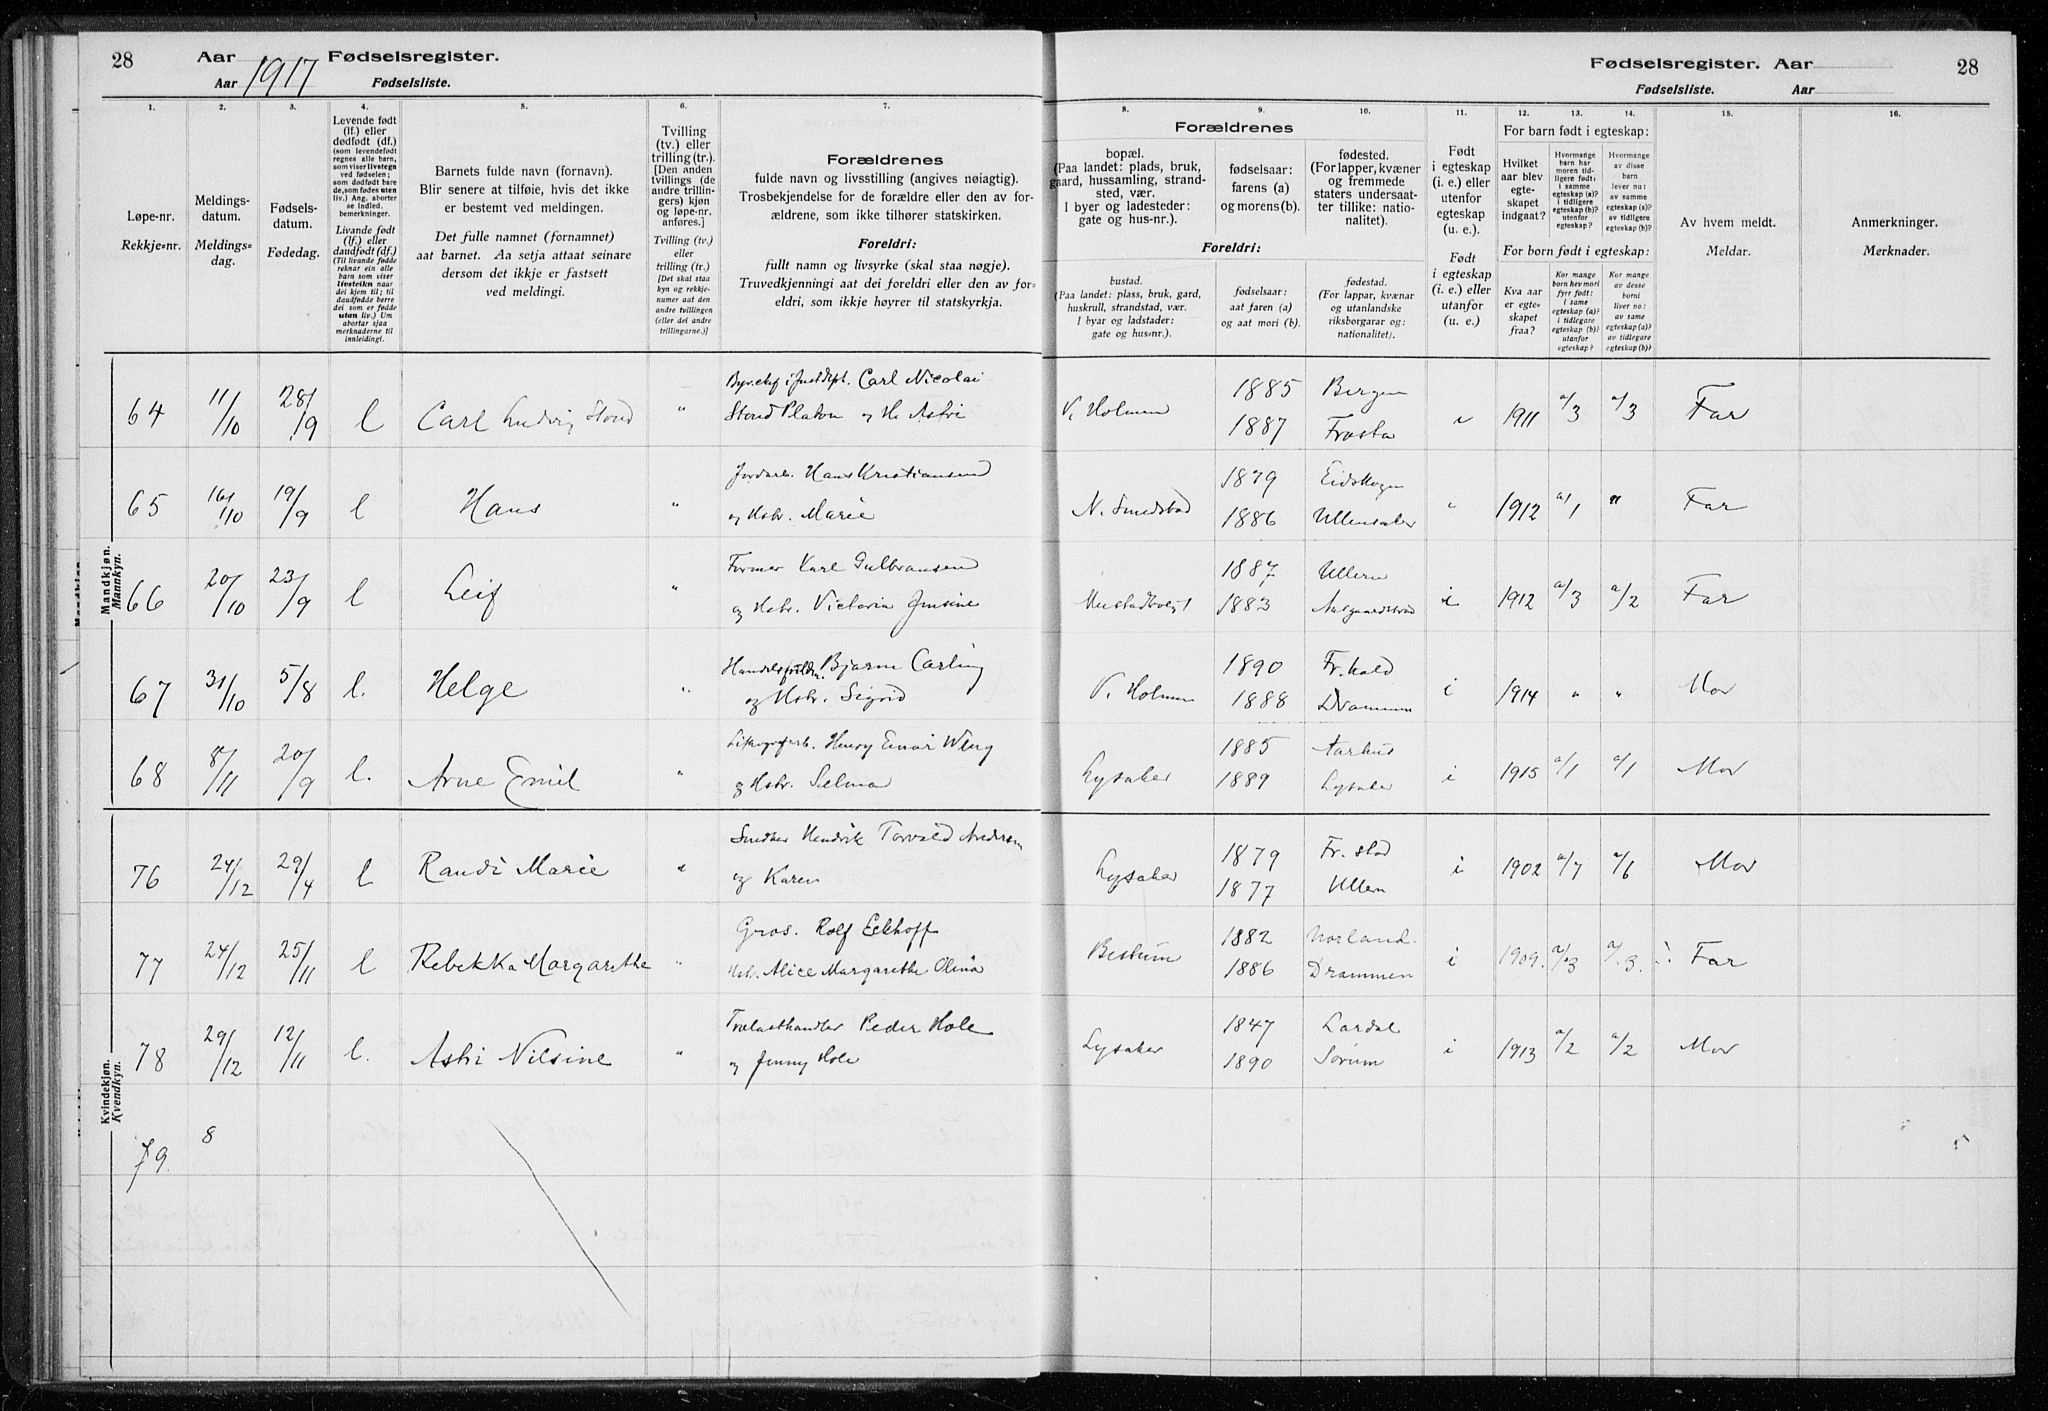 28 Aar Fødselsregister.
Aar 1917 Fødselsliste.
Fødselsregister. Aar 28
Fødselsliste. Aar
1. 2. 3. 4. 5. 6. 7. 8. 9. 10. 11. 12. 13. 14. 15. 16.
Løpe-nr.
Rekkje=nr.
Meldings-
datum.
Meldings=
dag.
Fødsels-
datum.
Fødedag.
Levende født
(lf.) eller
dødfødt (df.)
(som levendefødt
regnes alle barn,
som viser livstegn
ved fødselen;
som dødfødt bare
de, som fødes uten
liv.) Ang. aborter
se indled.
bemerkninger.
Livande født
(lf.) eller
daudfødt (df.)
(Til livande fødde
reknar ein alle
barn som viser
livsteikn naar
dei kjem til; til
daudfødde berre
dei som er fødde
utan liv.) Um
abortar sjaa
merknaderne til
innleidingi.
Barnets fulde navn (fornavn).
Blir senere at tilføie, hvis det ikke
er bestemt ved meldingen.
Det fulle namnet (fornamnet)
aat barnet. Aa setja attaat seinare
dersom det ikkje er fastsett
ved meldingi.
Tvilling
(tv.) eller
trilling (tr.).
[Den anden
tvillings (de
andre trillin-
gers) kjøn
og løpe-nr.
anføres.]
Tvilling (tv.)
eller
trilling (tr.)
[Det skal staa
kyn og rekkje-
numer aat den
andre tvillingen
(eller dei andre
trillingarne.)]
Forældrenes
fulde navn og livsstilling (angives nøiagtig).
Trosbekjendelse for de forældre eller den av for-
ældrene, som ikke tilhører statskirken.
Foreldri:
fullt namn og livsyrke (skal staa nøgje).
Truvedkjenningi aat dei foreldri eller den av for=
eldri, som ikkje høyrer til statskyrkja.
Forældrenes
bopæl.
(Paa landet: plads, bruk,
gaard, hussamling, strand-
sted, vær.
I byer og ladesteder:
gate og hus-nr.).
fødselsaar:
farens (a)
og morens (b).
fødested.
(For lapper, kvæner
og fremmede
staters undersaat-
ter tillike: natio-
nalitet).
Foreldri:
bustad.
(Paa landet: plass, bruk, gard,
huskrull, strandstad, vær.
I byar og ladstader:
gate og hus=nr.).
fødselsaar:
aat faren (a)
og aat mori (b).
fødestad.
(For lappar, kvænar
og utanlandske
riksborgarar og:
nationalitet).
Født
i egteskap
(i. e.) eller
utenfor
egteskap
(u. e.).
Født
i egteskap
(i. e.) eller
utanfor
(u. e.)
For barn født i egteskap:
Hvilket
aar blev
egte-
skapet
indgaat?
Hvormange
barn har
moren tid-
ligere født:
i samme
egteskap (a)?
i tidligere
egteskap (b)?
utenfor
egteskap?
Hvormange
av disse
barn
lever nu:
av samme
egteskap (a)?
av tidligere
egteskap (b)?
For born født i egteskap:
Kva aar
er egte-
skapet
fraa?
Kor mange
born hev mori
fyrr født:
i same
egteskap (a)?
i tidlegare
egteskap (b)?
utanfor
egteskap?
Kor mange
av desse
borni
liver no:
av same
egteskap (a)?
av tidlegare
egteskap (b)?
Av hvem meldt.
Meldar.
Anmerkninger.
Merknader.
Mandkjøn.
Mannkyn.
64 11/10 28/9 l Carl Ludvig Stoud " Byr.chef i Justdept. Carl Nicolai
Stoud Platou og H. Astri V. Holmen 1885 Bergen
1887 Frosta i 1911 a/3 a/3 Far
65 16/10 19/9 l Hans " Jordarb. Hans Kristiansend
og Hstr. Marie N. Smedstad 1879 Eidskogen
1886 Ullensaker " 1912 a/1 " Far
66 20/10 23/9 l Leif " Former Karl Gulbransen
og Hstr. Victoria Jensine Mustadbolig 1887 Ullern
1883 Aasgaardstrand i 1912 a/3 a/2 Far
67 31/10 5/8 l. Helge " Handelsfuldm. Bjarne Carling
og Hstr. Sigrid V. Holmen 1890 Fr.hald
1888 Drammen i 1914 " " Mor
68 8/11 20/9 l. Arne Emil " Litografarb. Henry Einar Weng
og Hstr. Selma Lysaker 1885 Aarhus
1889 Lysaker i 1915 a/1 a/1 Mor
Kvindekjøn.
Kvendkyn.
76 24/12 29/4 l Randi Marie " Hendrik Torvald Andersen
og Karen Lysaker 1879 Fr.stad
1877 Ullern i 1902 a/7 a/6 Mor
77 24/12 25/11 l Rebekka Margarethe " Gros. Rolf Eckhoff
Hstr. Alice Margarethe Olina Bestum 1882 Norland.
1886 Drammen i 1909. a/3 a/3. Far
78 29/12 12/11 l. Astri Nilsine " Trælasthandler Peder Hole
og Jenny Hole Lysaker 1847 Lardal
1890 Sørum i 1913 a/2 a/2 Mor
79. 8